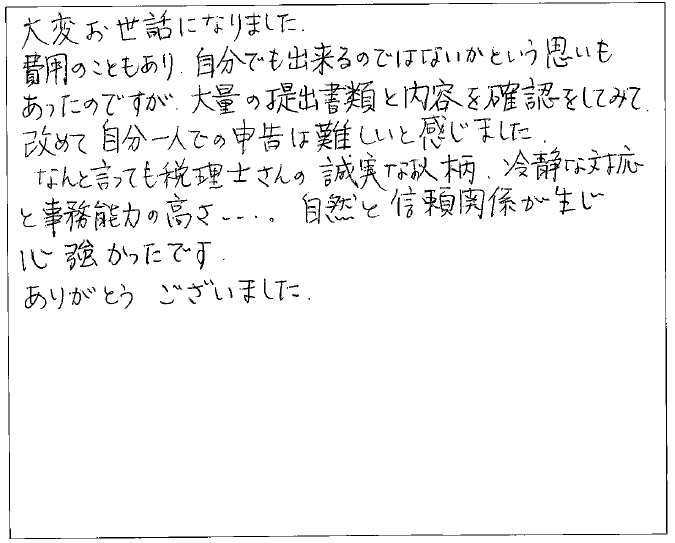 大変お世話になりました.
費用のこともあり.自分でも出来るのではないかという思いも
あったのですが.大量の提出書類と内容を確認をしてみて.
改めて自分一人での申告は難しいと感じました.
なんと言っても税理士さんの誠実なお人柄.冷静な対応
と事務能力の高さ‥‥。自然と信頼関係が生じ
心強かったです.
ありがとう ございました.